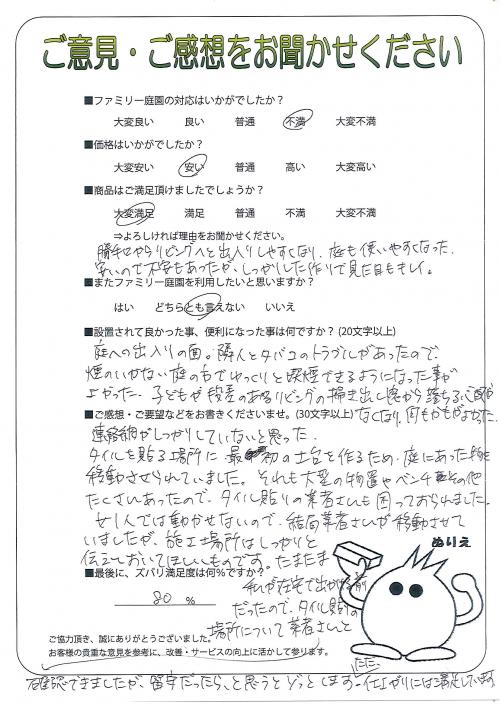 ご意見・ご感想をお聞かせください
■ファミリー庭園の対応はいかがでしたか？
大変良い 良い 普通 不満 大変不満
■価格はいかがでしたか？
大変安い 安い 普通 高い 大変高い
■商品はご満足頂けましたでしょうか？
大変満足 満足 普通 不満 大変不満
⇒よろしければ理由をお聞かせください。
勝手口からリビングへと出入りしやすくなり、庭も使いやすくなった。
安いので不安もあったが、しっかりした作りで見た目もキレイ。
■またファミリー庭園を利用したいと思いますか？
はい どちらとも言えない いいえ
■設置されて良かった事、便利になった事は何ですか？(20文字以上)
庭への出入りの面。隣人とタバコのトラブルがあったので、
煙のいかない庭の方でゆっくりと喫煙できるようになった事が
よかった。子どもが段差のあるリビングの掃き出し窓から落ちる心配が
■ご感想・ご要望などをお書きくださいませ。(30文字以上)
なくなり、何もかもがよかった。
連絡網がしっかりしていないと思った。
タイルを貼る場所に最初の土台を作るため、庭にあった物を
移動させられていました。それも大型の物置やベンチその他
たくさんあったので、タイル貼りの業者さんも困っておられました。
女1人では動かせないので、結局業者さんが移動させて
いましたが、施工場所はしっかりと
伝えておいてほしいものです。たまたま
■最後に、ズバリ満足度は何%ですか？
私が在宅で出かける前
80 %
だったので、タイル貼りの
場所について業者さんと
ぬりえ
ご協力頂き、誠にありがとうございました。
お客様の貴重な意見を参考に、改善・サービスの向上に活かして参ります。
確認できましたが、留守だったら、と思うとゾッとします。ただ、仕上がりには満足しています